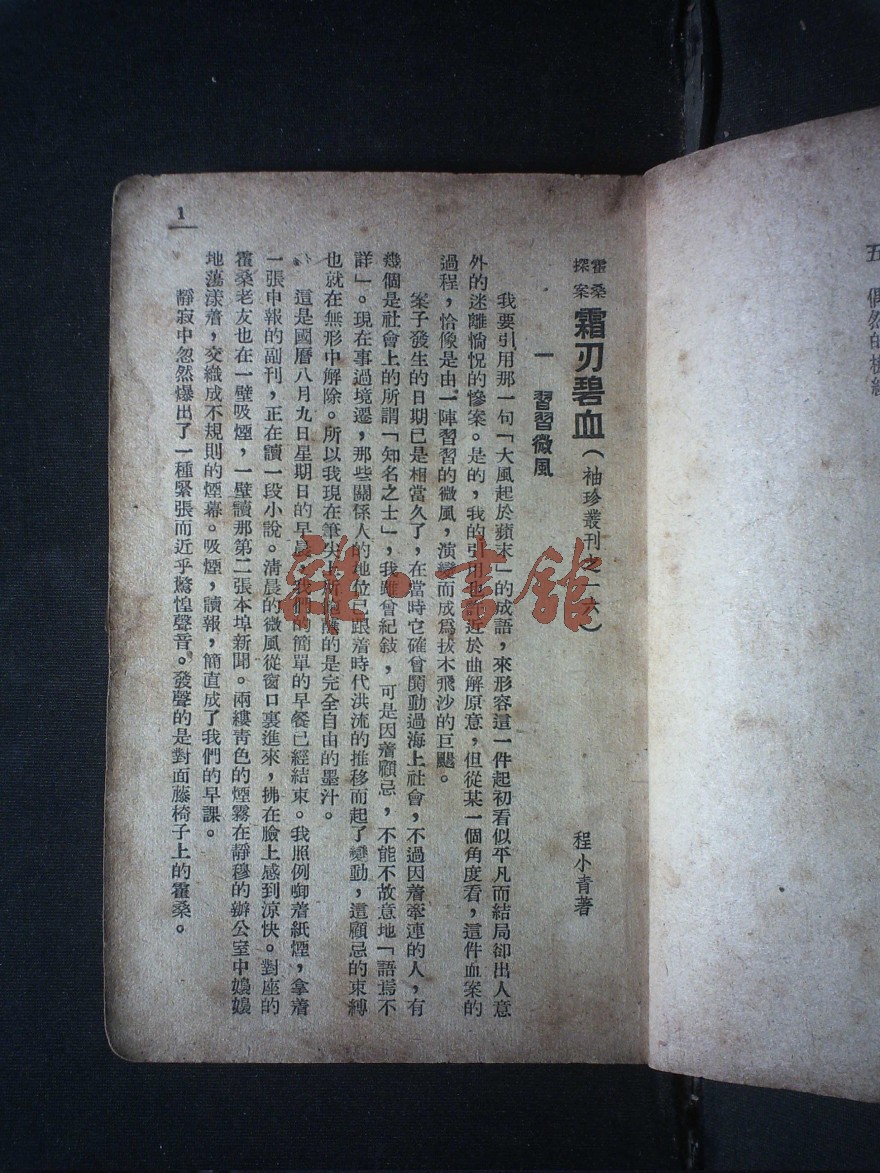 五 偶然的機
霍桑探案 霜刃碧血(袖珍叢刊之一六) 程小青著
一 習習微風
我要引用那一句「大風起於蘋末」的成語,來形容這一件起初看似平凡而結局卻出人意
外的迷離惝怳的慘案。是的,我的引用也許近於曲解原意,但從某一個角度看,這件血案的
過程,恰像是由一陣習習的微風,演變而成爲拔木飛沙的巨颶。
案子發生的日期已是相當久了,在當時它確曾鬨動過海上社會,不過因着牽連的人,有
幾個是社會上的所謂「知名之士」,我雖曾紀敍,可是因着顧忌,不能不故意地「語焉不
詳」。現在事過境遷,那些關係人的地位已跟着時代洪流的推移而起了變動,這顧忌的束縛
也就在無形中解除。所以我現在筆尖上所 的是完全自由的墨汁。
這是國曆八月九日星期日的早晨,我們的簡單的早餐已經結束。我照例啣着紙煙,拿着
一張申報的副刊,正在讀一段小說。清晨的微風從窗口裏進來,拂在臉上感到涼快。對座的
霍桑老友也在一壁吸煙,一壁讀那第二張本埠新聞。兩縷青色的煙霧在靜穆的辦公室中嬝嬝
地蕩漾着,交織成不規則的煙幕。吸煙,讀報,簡直成了我們的早課。
靜寂中忽然爆出了一種緊張而近乎驚惶聲音。發聲的是對面藤椅子上的霍桑。
1
雜·書館